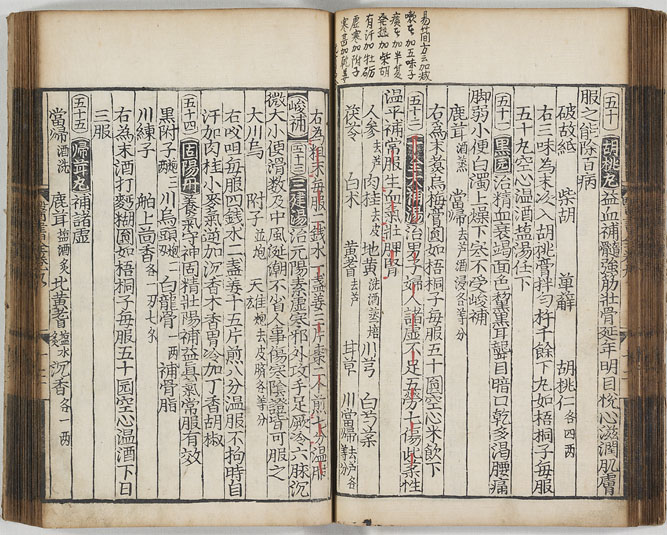 易簡方云加減
嗽者加五味子
痰多加半夏
發熱加柴胡
有汗加牡礪
虛寒加附子
寒甚加乾姜
五十 胡桃丸 益血補髓強筋壯骨延年明目悅心滋潤肌膚
服之能除百病
破故紙 柴胡 萆薢 胡桃仁各四兩
右三味為末次入胡桃膏拌勻杵千餘下丸如梧桐子每服
五十九空心溫酒鹽湯任下
五十一 黑圓 治精血衰竭面色黧黑耳聾目暗口乾多渴腰痛
脚弱小便白濁上燥下寒不受峻補
鹿茸酒蒸 當歸去芦酒浸各等分
右為末煮烏梅膏圓如梧桐子每服五十圓空心米飲下
五十二 十全大補湯 治男子婦人諸虛不足五勞七傷此藥性
溫平補常服生血氣壯脾胃
人參去芦 肉桂去皮 地黃洗酒蒸焙 川芎 白芍藥
茯苓 白朮 黃耆去芦 甘草 川當歸去芦各等分
右為粗末每服二錢水一盞薑三片棗二个煎七分溫服
峻補 五十三 三建湯 治元陽素虛寒邪外攻手足厥冷六脉沉
微大小便滑數及中風涎潮不省人事傷寒陰證皆可服之
大川烏 附子並炮 天雄炮去皮臍各等分
右㕮咀每服四錢水二盞薑十五片煎八分溫服不拘時自
汗加肉桂小麥氣逆加沉香木香胃冷加丁香胡椒
五十四 固陽丹 養氣守神固精壯陽補益真氣常服有效
黑附子炮三兩 川烏頭炮二兩 白龍骨一兩 補骨脂
川練子 舶上茴香各一兩七錢
右為末酒打麵糊圓如梧桐子每服五十圓空心溫酒下日
三服
五十五 歸茸丸 補諸虛
當歸酒洗 鹿茸鹽酒炙 北黃耆鹽水炙 沉香各一兩